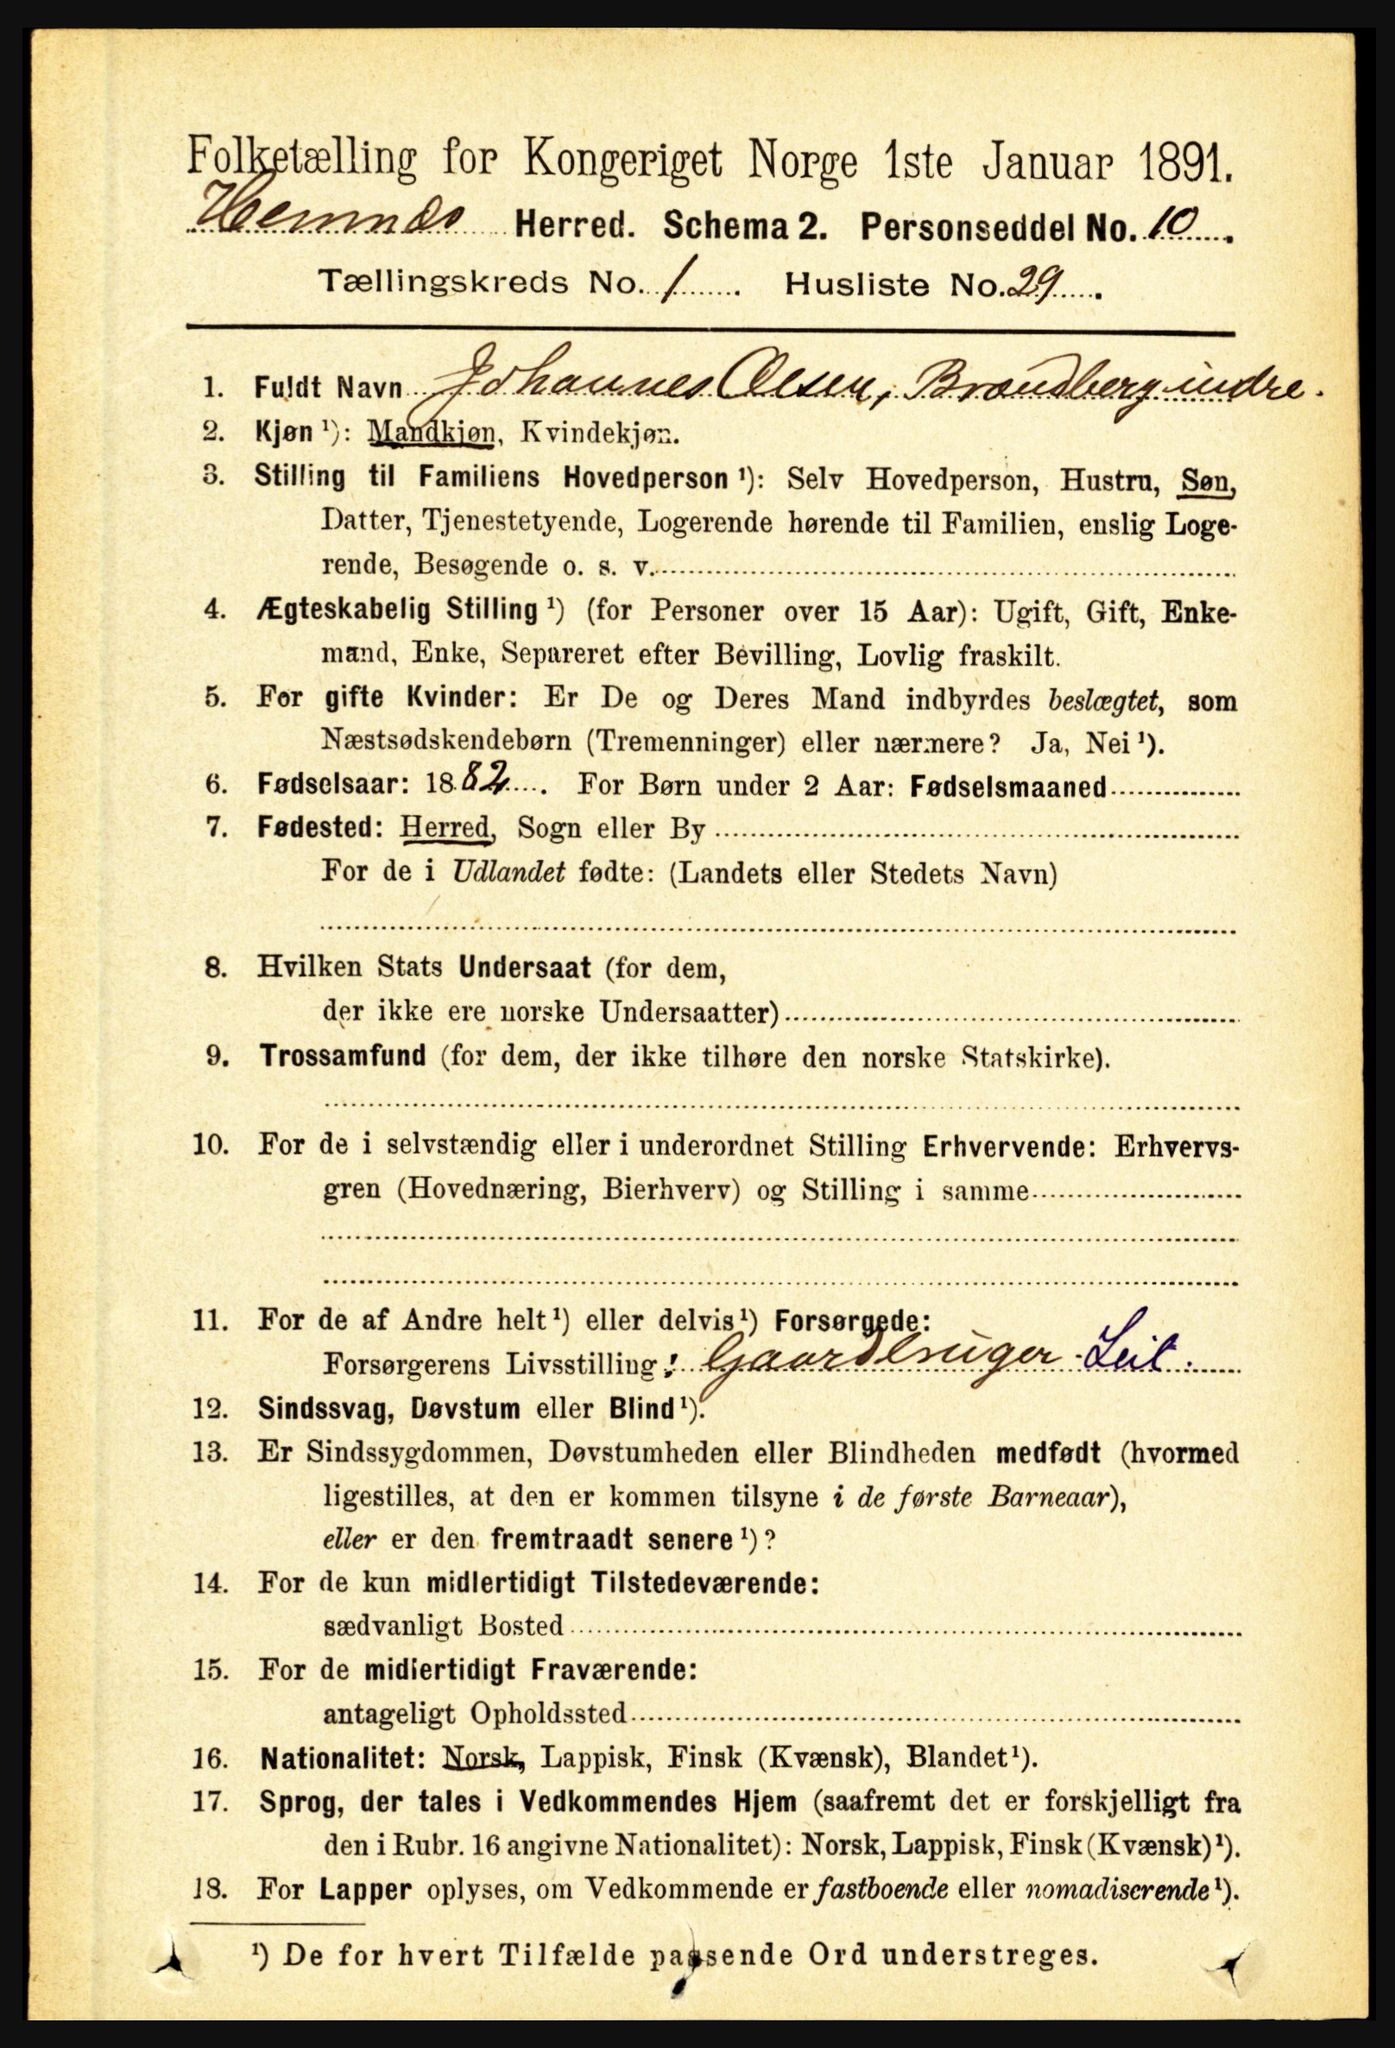 Folketælling for Kongeriget Norge 1ste Januar 1891.
Hemnæs Herred. Schema 2. Personseddel No. 10.
Tællingskreds No. 1. Husliste No. 29.
1. Fuldt Navn Johannes Olsen, Brændberg indre.
2. Kjøn ¹): Mandkjøn, Kvindekjøn.
3. Stilling til Familiens Hovedperson ¹): Selv Hovedperson, Hustru, Søn,
Datter, Tjenestetyende, Logerende hørende til Familien, enslig Loge-
rende, Besøgende o. s. v.
4. Ægteskabelig Stilling ¹) (for Personer over 15 Aar): Ugift, Gift, Enke-
mand, Enke, Separeret efter Bevilling, Lovlig fraskilt.
5. For gifte Kvinder: Er De og Deres Mand indbyrdes beslægtet, som
Næstsødskendebørn (Tremenninger) eller nærmere? Ja, Nei ¹).
6. Fødselsaar: 1882. For Børn under 2 Aar: Fødselsmaaned
7. Fødested: Herred, Sogn eller By
For de i Udlandet fødte: (Landets eller Stedets Navn)
8. Hvilken Stats Undersaat (for dem,
der ikke ere norske Undersaatter)
9. Trossamfund (for dem, der ikke tilhøre den norske Statskirke).
10. For de i selvstændig eller i underordnet Stilling Erhvervende: Erhvervs-
gren (Hovednæring, Bierhverv) og Stilling i samme
11. For de af Andre helt ¹) eller delvis ¹) Forsørgede:
Forsørgerens Livsstilling: Gaardbruger Leil.
12. Sindssvag, Døvstum eller Blind ¹).
13. Er Sindssygdommen, Døvstumheden eller Blindheden medfødt (hvormed
ligestilles, at den er kommen tilsyne i de første Barneaar),
eller er den fremtraadt senere ¹)?
14. For de kun midlertidigt Tilstedeværende:
sædvanligt Bosted
15. For de midlertidigt Fraværende:
antageligt Opholdssted
16. Nationalitet: Norsk, Lappisk, Finsk (Kvænsk), Blandet ¹).
17. Sprog, der tales i Vedkommendes Hjem (saafremt det er forskjelligt fra
den i Rubr. 16 angivne Nationalitet): Norsk, Lappisk, Finsk (Kvænsk) ¹).
18. For Lapper oplyses, om Vedkommende er fastboende eller nomadiserende ¹).
¹) De for hvert Tilfælde passende Ord understreges.